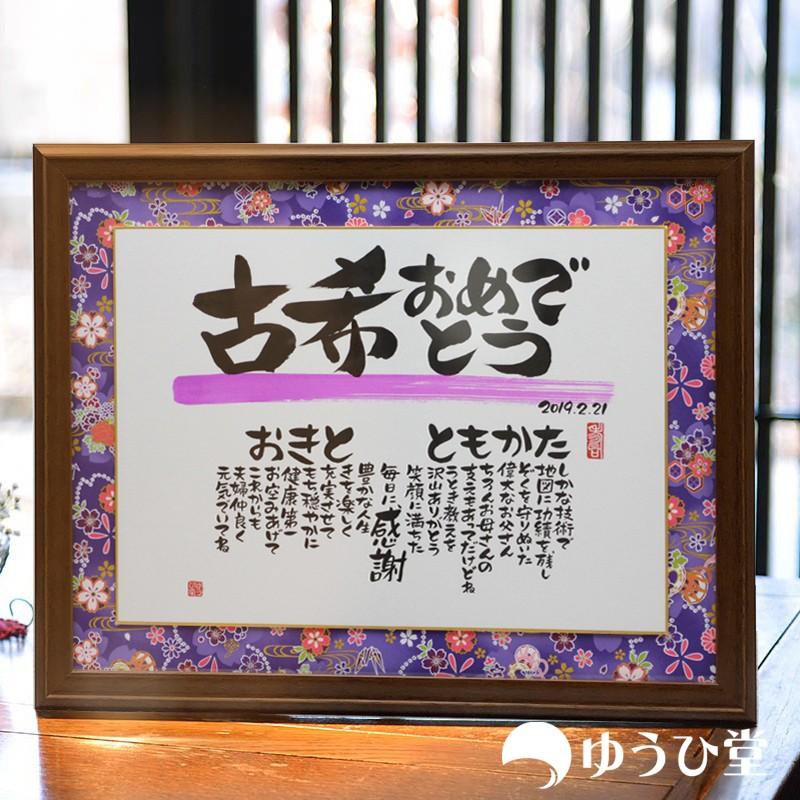 古希おめで
とう
2019.2.21
たかもと
しかな技術で
地図に功績を残し
ぞくを守りぬいた
偉大なお父さん
ちろんお母さんの
支えもあってだけどね
うとき教えを
沢山ありがとう
笑顔に満ちた
毎日に感謝
ときお
豊かな人生
きを楽しく
充実させて
もち穏やかに
健康第一
お空みあげて
これからも
夫婦仲良く
元気でいてね
ゆうひ堂